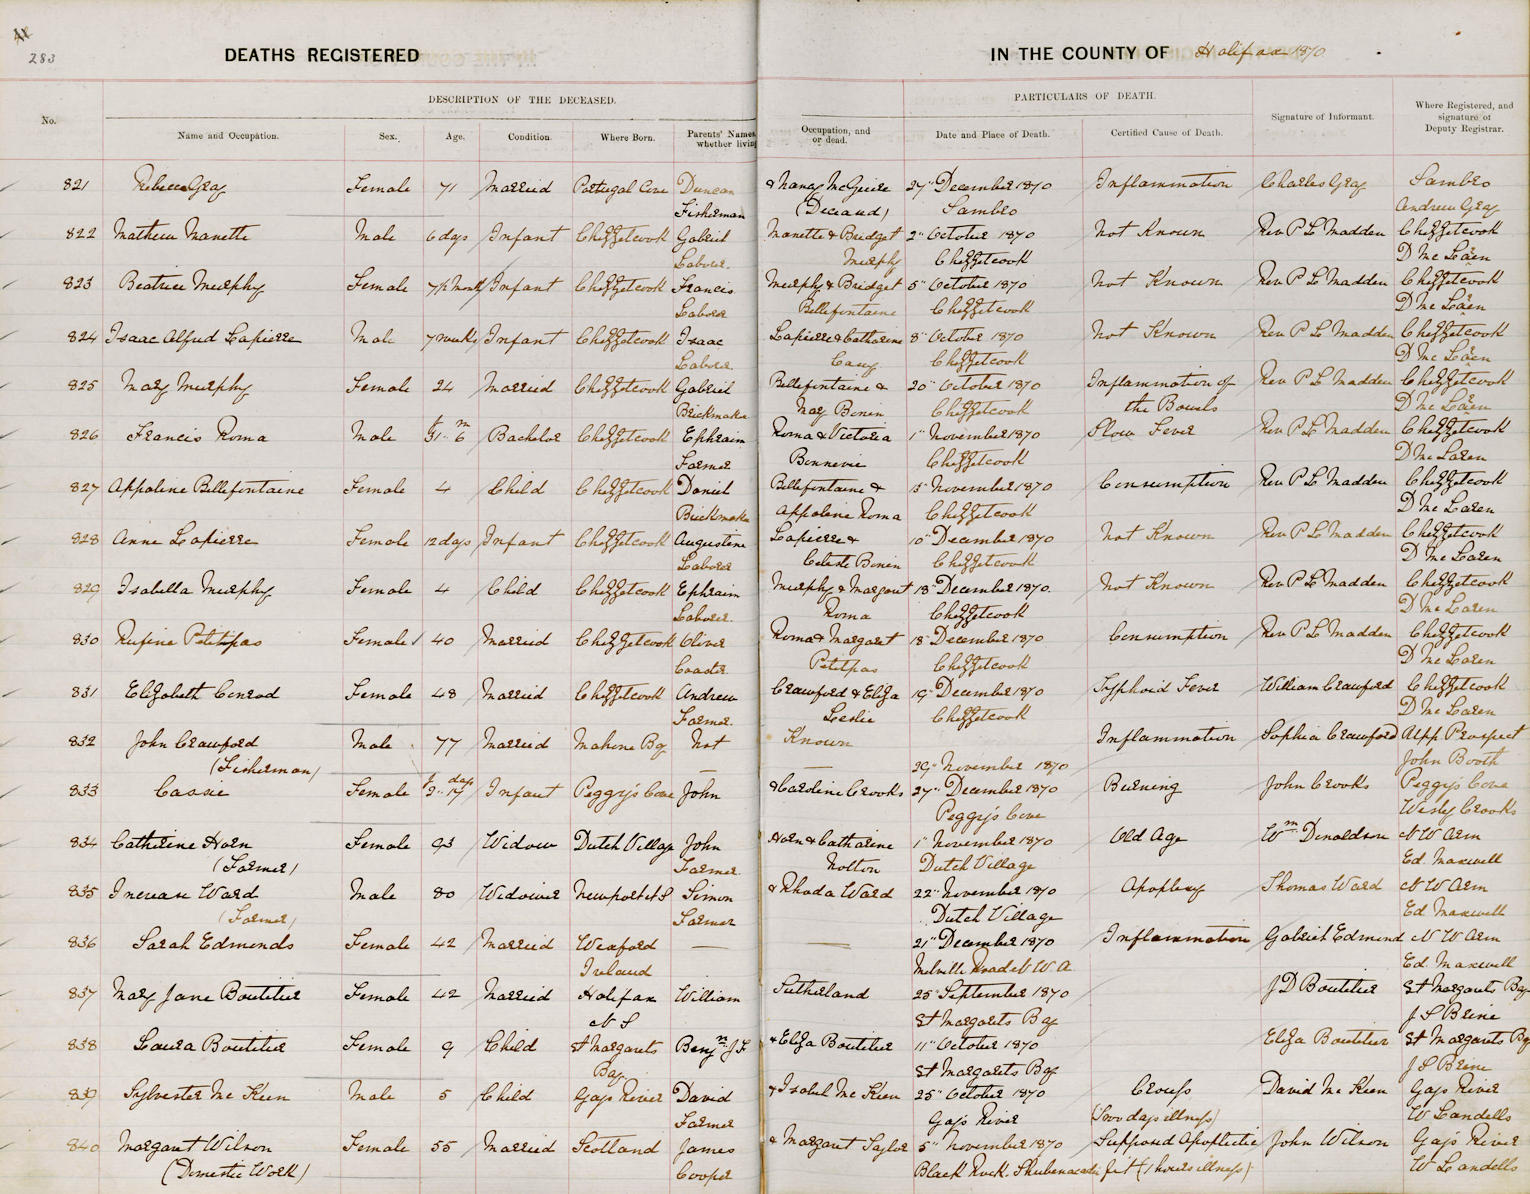 283
DEATHS REGISTERED IN THE COUNTY OF Halifax 1870
DESCRIPTION OF THE DECEASED. PARTICULARS OF DEATH.
No. Name and Occupation. Sex. Age. Condition. Where Born. Parents' Names, whether living Occupation, and or dead. Date and Place of Death. Certified Cause of Death. Signature of Informant. Where Registered, and signature of Deputy Registrar.
821 Rebecca Gray Female 71 Married Portugal Cove Duncan & Nancy McGuire 27" December 1870 Inflammation Charles Gray Sambro
Fisherman (Deceased) Sambro Andrew Gray
822 Mathew Manette Male 6 dys Infant Chezzetcook Gabriel Manette & Bridget 2" October 1870 Not Known Rev P L Madden Chezzetcook
Laborer. Murphy Chezzetcook D Mc Laren
823 Beatrice Murphy Female Infant Chezzetcook Francis Murphy & Bridget 5" October 1870 Not Known Rev P L Madden Chezzetcook
Laborer Bellefontaine Chezzetcook D Mc Laren
824 Isaac Alfred Lapierre Male 7 weeks Infant Chezzetcook Isaac Lapierre & Catharine 8" October 1870 Not Known Rev P L Madden Chezzetcook
Laborer Chezzetcook D Mc Laren
825 Mary Murphy Female 24 Married Chezzetcook Gabriel Bellefontaine & 20" October 1870 Inflammation of Rev P L Madden Chezzetcook
Brickmaker May Bonin Chezzetcook the Bowels D Mc Laren
826 Francis Roma Male Bachelor Chezzetcook Ephraim Roma & Victoria 1" November 1870 Slow Fever Rev P L Madden Chezzetcook
Farmer Bonnevie Chezzetcook D Mc Laren
827 Appoline Bellefontaine Female 4 Child Chezzetcook Daniel Bellefontaine & 15" November 1870 Consumption Rev P L Madden Chezzetcook
Brickmaker Appoline Roma Chezzetcook D Mc Laren
828 Anne Lapierre Female 12 dys Infant Chezzetcook Augustine Lapierre & 10" December 1870 Not Known Rev P L Madden Chezzetcook
Laborer Celeste Bonin Chezzetcook D Mc Laren
829 Isabella Murphy Female 4 Child Chezzetcook Ephraim Murphy & Margaret 18" December 1870. Not Known Rev P L Madden Chezzetcook
Laborer. Roma Chezzetcook D Mc Laren
830 Rufine Petitpas Female 40 Married Chezzetcook Oliver Roma & Margaret 18" December 1870 Consumption Rev P L Madden Chezzetcook
Coaster Petitpas Chezzetcook D Mc Laren
831 Elizabeth Conrod Female 48 Married Chezzetcook Andrew Crawford & Eliza 19" December 1870 Typhoid Fever William Crawford Chezzetcook
Farmer. Leslie Chezzetcook D Mc Laren
832 John Crawford Male 77 Married Mahone Bay Not Known Inflammation Sophia Crawford Upp Prospect
(Fisherman) 29" November 1870 John Booth
833 Cassie Female Infant Peggy's Cove John & Caroline Crooks 27" December 1870 Burning John Crooks Peggy's Cove
Peggy's Cove Wesly Crooks
834 Catherine Horn Female 93 Widow Dutch Village John Horn & Catharine 1" November 1870 Old Age Wm Donaldson N W Arm
(Farmer) Farmer Nolton Dutch Village Ed. Maxwell
835 Increase Ward Male 80 Widower Newport N S Simon & Rhoda Ward 22" November 1870 Apoplexy Thomas Ward N W Arm
(Farmer) Farmer Dutch Village Ed Maxwell
836 Sarah Edmonds Female 42 Married Wexford 21" December 1870 Inflammation Gabriel Edmond N W Arm
Ireland Melville Road N W A Ed. Maxwell
837 Mary Jane Boutilier Female 42 Married Halifax William Sutherland 25" September 1870 J D Boutilier St Margarets Bay
N S St Margarets Bay J S Brine
838 Laura Boutilier Female 9 Child St Margarets Benjn J F & Eliza Boutilier 11" October 1870 Eliza Boutilier St Margarets Bay
Bay St Margarets Bay J S Brine
839 Sylvester Mc Keen Male 5 Child Gays River David & Isabel Mc Keen 25" October 1870 Croup David Mc Keen Gays River
Farmer Gays River (Two days illness) W Landells
840 Margaret Wilson Female 55 Married Scotland James & Margaret Taylor 5" November 1870 Supposed Apoplectic John Wilson Gays River
(Domestic Work) Cooper Black Rock. Shubenacadie fit (1 hours illness) W Landells